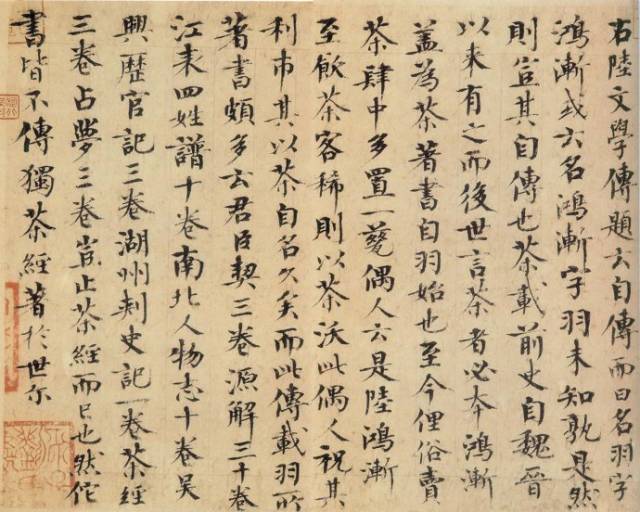 右陸文學傳題云自傳而曰名羽字
鴻漸或云名鴻漸字羽未知孰是然
則豈其自傳也茶載前史自魏晉
以來有之而後世言茶者必本鴻漸
蓋為茶著書自羽始也至今俚俗賣
茶肆中多置一甆偶人云是陸鴻漸
至飲茶客稀則以茶沃此偶人祝其
利市其以茶自名久矣而此傳載羽所
著書頗多云君臣契三卷源解三十卷
江表四姓譜十卷南北人物志十卷吳
興歷官記三卷湖州刺史記一卷茶經
三卷占夢三卷豈止茶經而已也然佗
書皆不傳獨茶經著於世尓